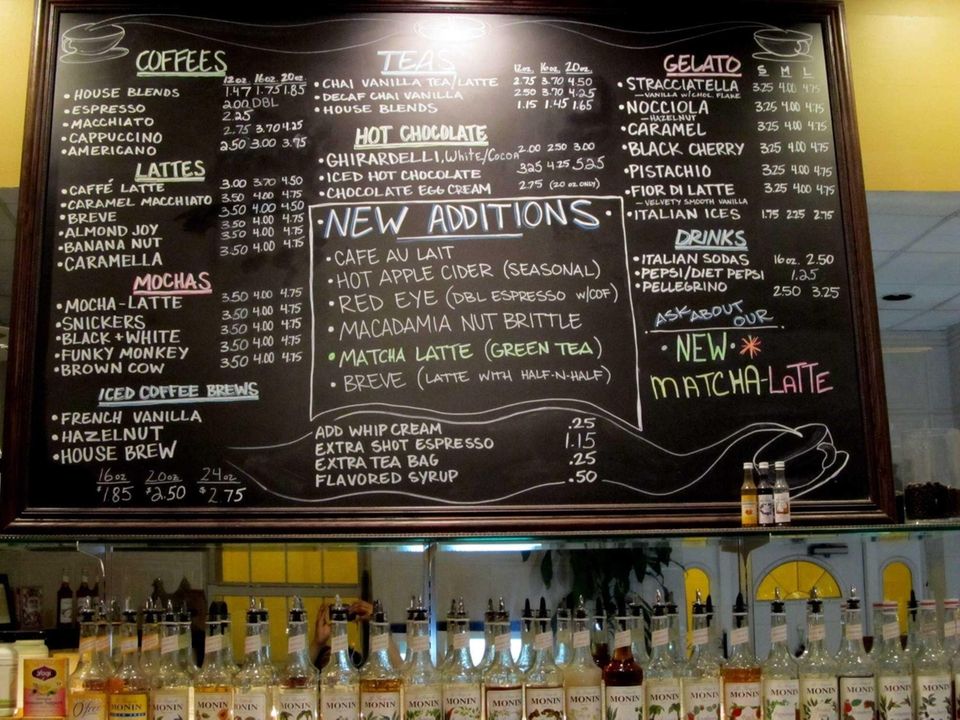 COFFEES
12oz. 16oz. 20oz.
• HOUSE BLENDS 1.47 1.75 1.85
• ESPRESSO 2.00 DBL
• MACCHIATO 2.25
• CAPPUCCINO 2.75 3.70 4.25
• AMERICANO 2.50 3.00 3.75
LATTES
• CAFFÉ LATTE 3.00 3.70 4.50
• CARAMEL MACCHIATO 3.50 4.00 4.75
• BREVE 3.50 4.00 4.50
• ALMOND JOY 3.50 4.00 4.75
• BANANA NUT 3.50 4.00 4.75
• CARAMELLA 3.50 4.00 4.75
MOCHAS
• MOCHA-LATTE 3.50 4.00 4.75
• SNICKERS 3.50 4.00 4.75
• BLACK + WHITE 3.50 4.00 4.75
• FUNKY MONKEY 3.50 4.00 4.75
• BROWN COW 3.50 4.00 4.75
ICED COFFEE BREWS
• FRENCH VANILLA
• HAZELNUT
• HOUSE BREW
16oz 20oz 24oz
$1.85 $2.50 $2.75
TEAS
12oz. 16oz. 20oz.
• CHAI VANILLA TEA/LATTE 2.75 3.70 4.50
• DECAF CHAI VANILLA 2.50 3.70 4.25
• HOUSE BLENDS 1.15 1.45 1.65
HOT CHOCOLATE
• GHIRARDELLI. White/Cocoa 2.00 2.50 3.00
• ICED HOT CHOCOLATE 3.25 4.25 5.25
• CHOCOLATE EGG CREAM 2.75 (20 oz ONLY)
• NEW ADDITIONS •
• CAFE AU LAIT
• HOT APPLE CIDER (SEASONAL)
• RED EYE (DBL ESPRESSO W/COF)
• MACADAMIA NUT BRITTLE
• MATCHA LATTE (GREEN TEA)
• BREVE (LATTE WITH HALF-N-HALF)
ADD WHIP CREAM .25
EXTRA SHOT ESPRESSO 1.15
EXTRA TEA BAG .25
FLAVORED SYRUP .50
GELATO S M L
• STRACCIATELLA 3.25 4.00 4.75
— VANILLA W/CHOC. FLAKE
• NOCCIOLA 3.25 4.00 4.75
— HAZELNUT
• CARAMEL 3.25 4.00 4.75
• BLACK CHERRY 3.25 4.00 4.75
• PISTACHIO 3.25 4.00 4.75
• FIOR DI LATTE 3.25 4.00 4.75
— VELVETY SMOOTH VANILLA
• ITALIAN ICES 1.75 2.25 2.75
DRINKS
• ITALIAN SODAS 16oz. 2.50
• PEPSI/DIET PEPSI 1.25
• PELLEGRINO 2.50 3.25
ASK ABOUT
OUR
• NEW •
MATCHA-LATTE
yogi
MONIN MONIN MONIN MONIN MONIN MONIN MONIN MONIN